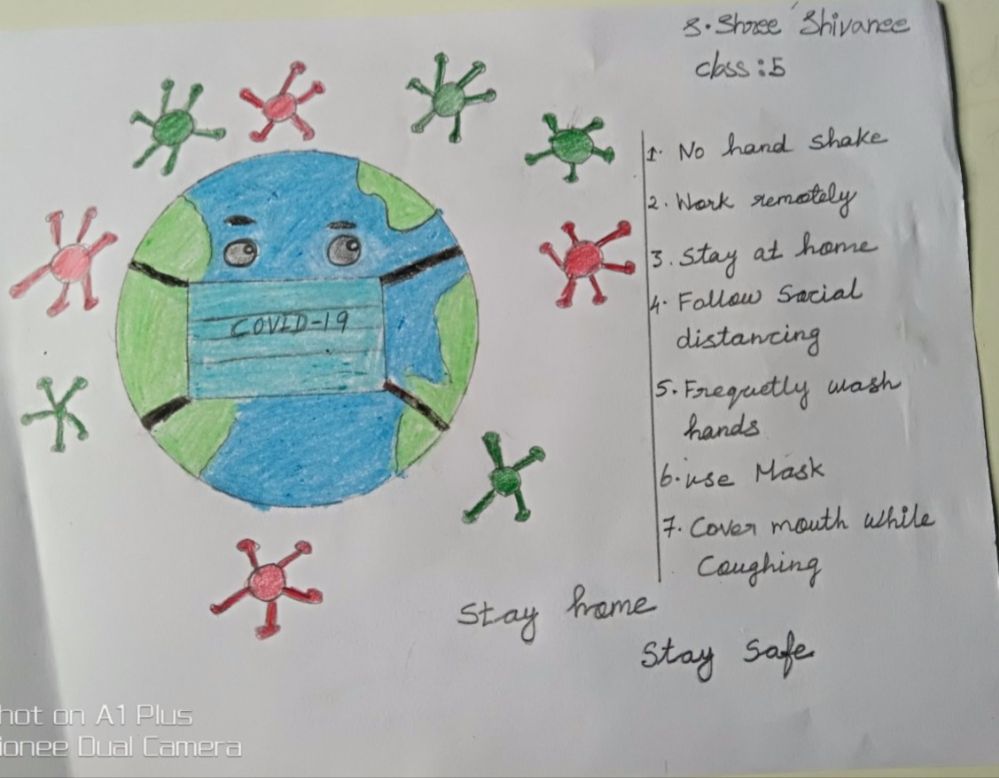 S. Shree Shivanee
class : 5
1. No hand shake
2. Work remotely
3. Stay at home
4. Follow Social
distancing
5. Frequetly wash
hands
6. use Mask
7. Cover mouth while
Coughing
COVID-19
Stay home
Stay safe
hot on A1 Plus
ionee Dual Camera